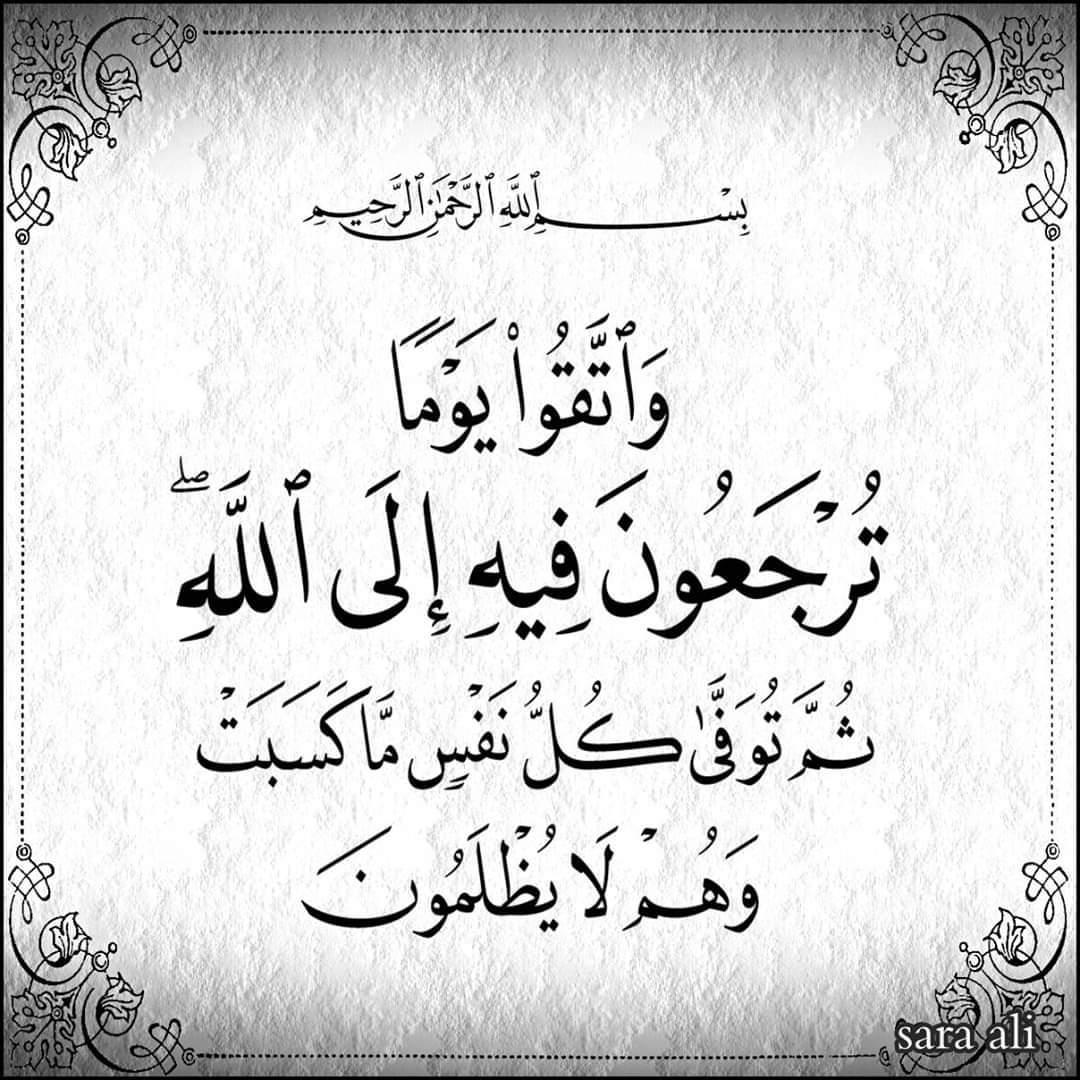 بِسْمِ ٱللَّهِ ٱلرَّحْمَٰنِ ٱلرَّحِيمِ
وَٱتَّقُوا۟ يَوْمًا
تُرْجَعُونَ فِيهِ إِلَى ٱللَّهِ ۖ
ثُمَّ تُوَفَّىٰ كُلُّ نَفْسٍ مَّا كَسَبَتْ
وَهُمْ لَا يُظْلَمُونَ
sara ali